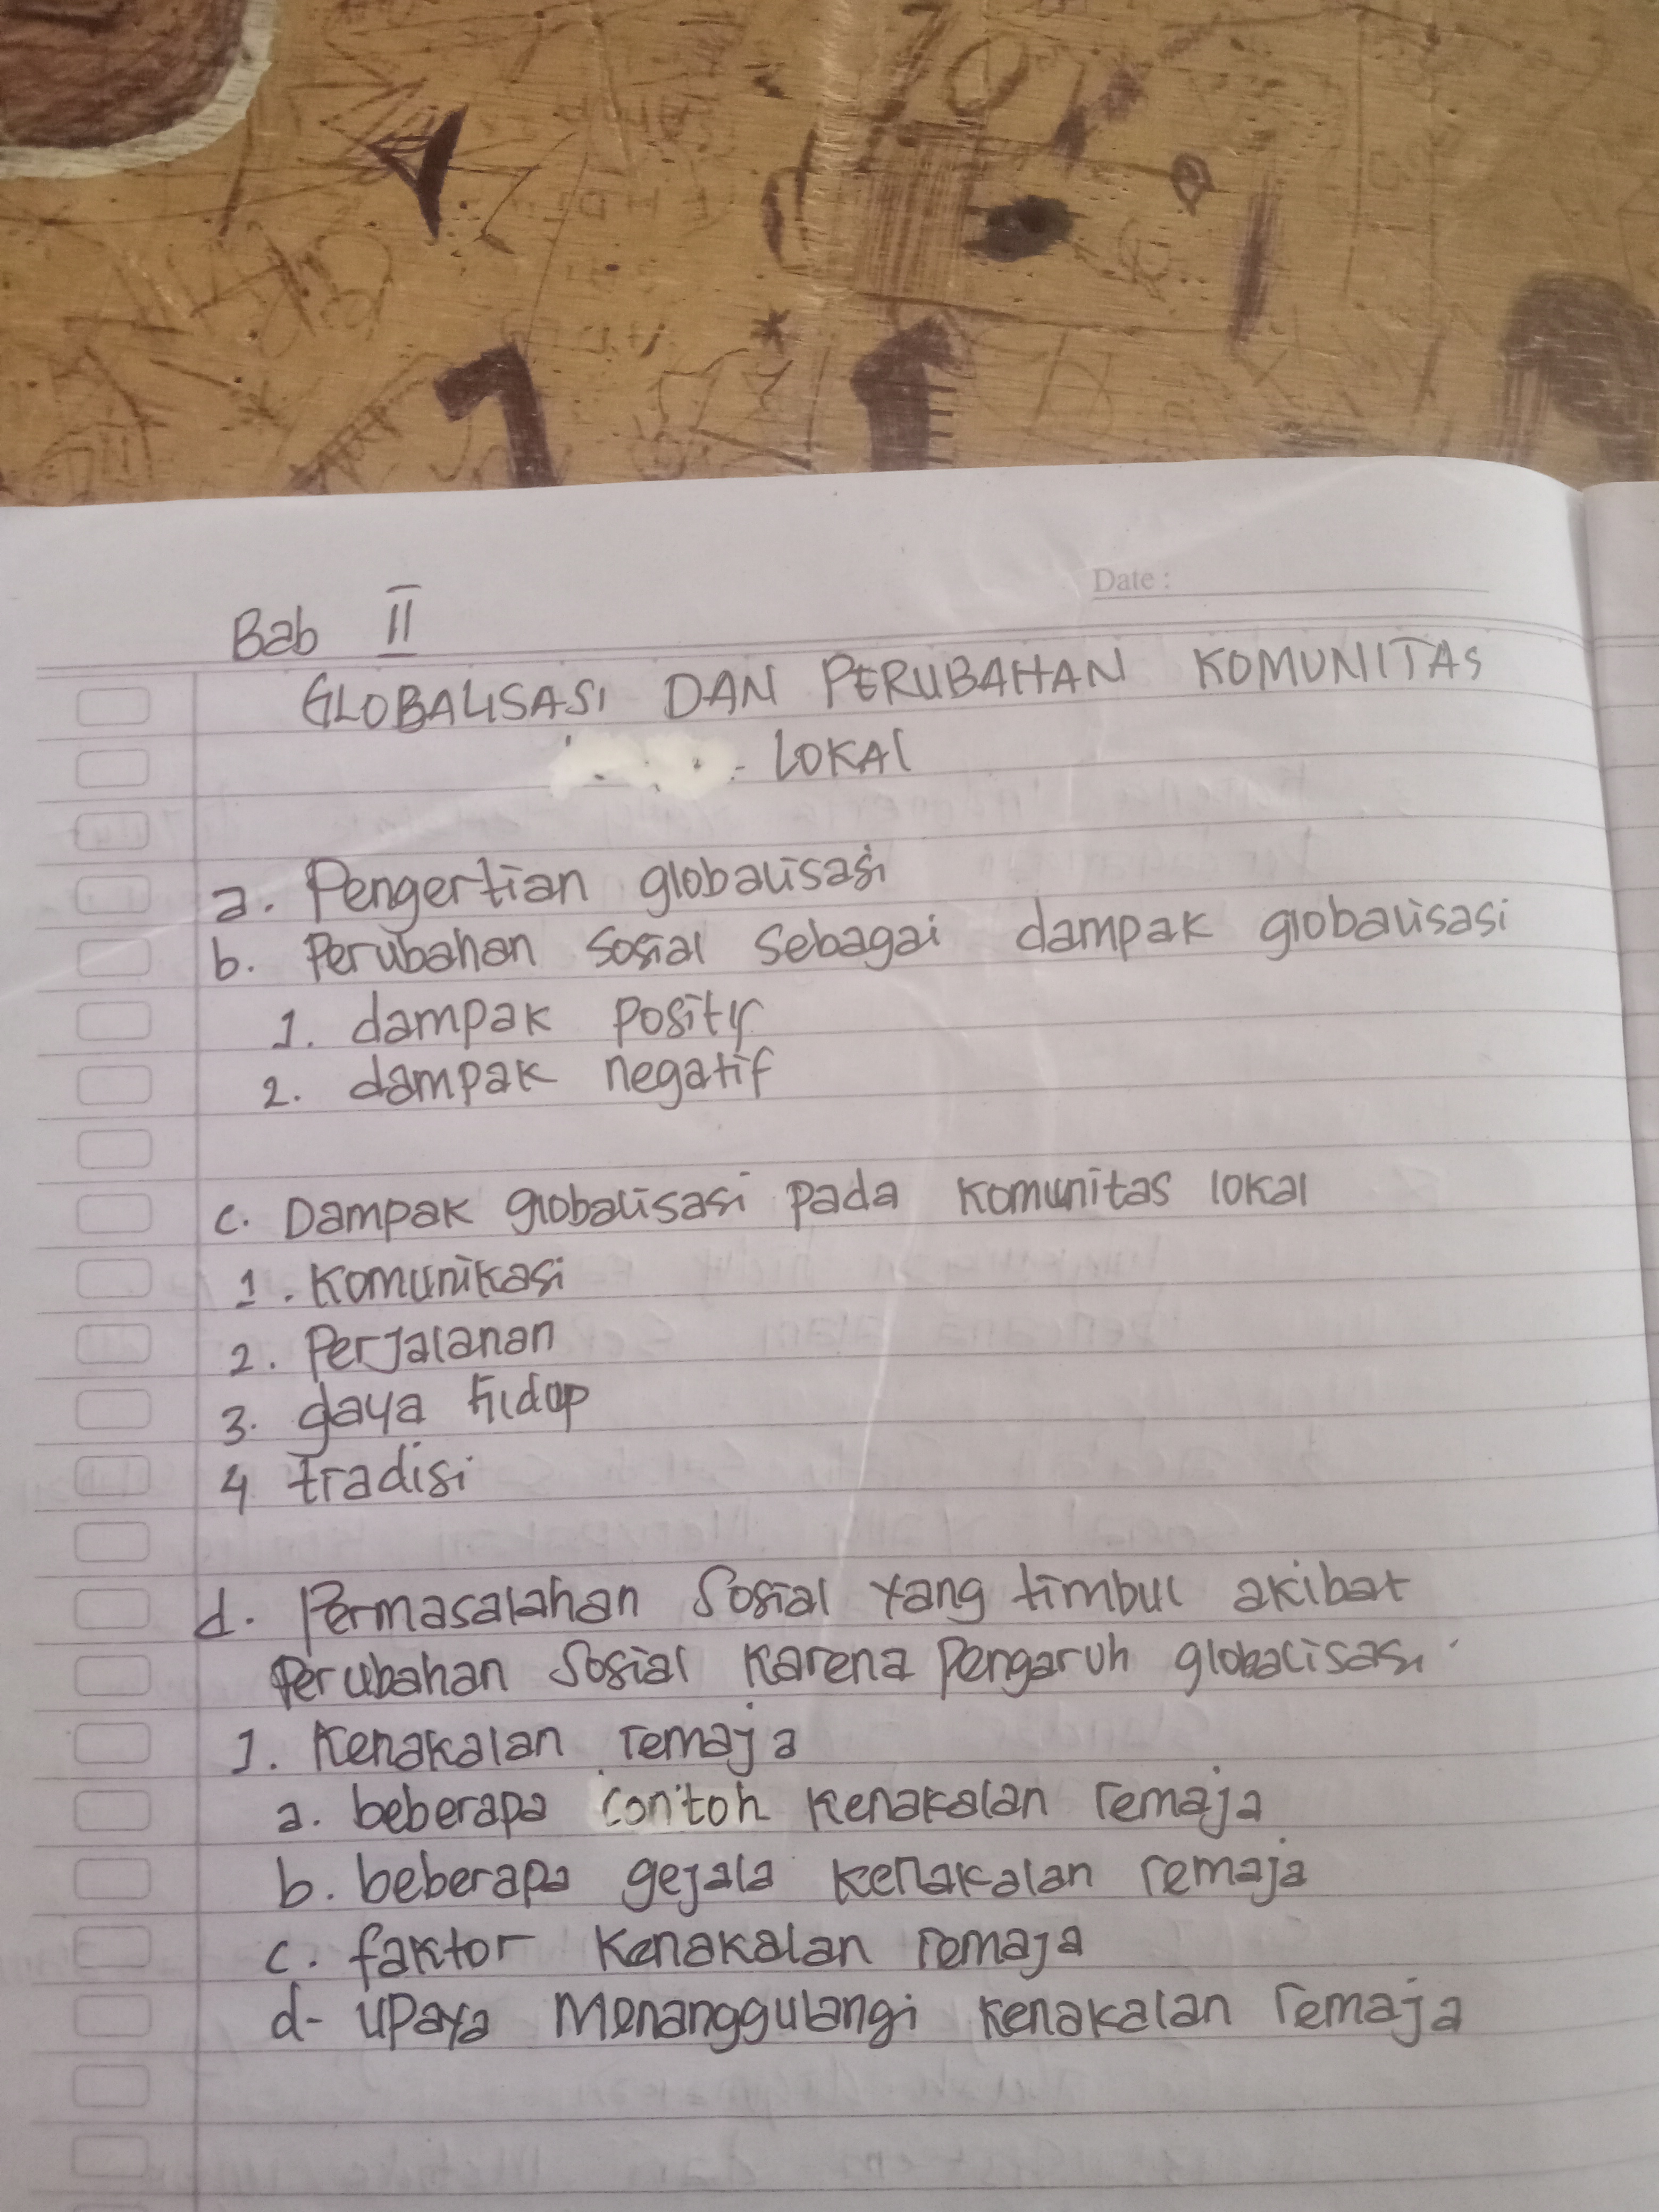 Date :
Bab II
GLOBALISASI DAN PERUBAHAN KOMUNITAS
LOKAL
a. Pengertian globalisasi
b. Perubahan sosial sebagai dampak globalisasi
1. dampak positif
2. dampak negatif
c. Dampak globalisasi pada komunitas lokal
1. Komunikasi
2. Perjalanan
3. gaya hidup
4 tradisi
d. Permasalahan Sosial yang timbul akibat
Perubahan Sosial Karena Pengaruh globalisasi
1. Kenakalan remaja
a. beberapa contoh kenakalan remaja
b. beberapa gejala kenakalan remaja
c. faktor Kenakalan remaja
d- upaya Menanggulangi kenakalan remaja